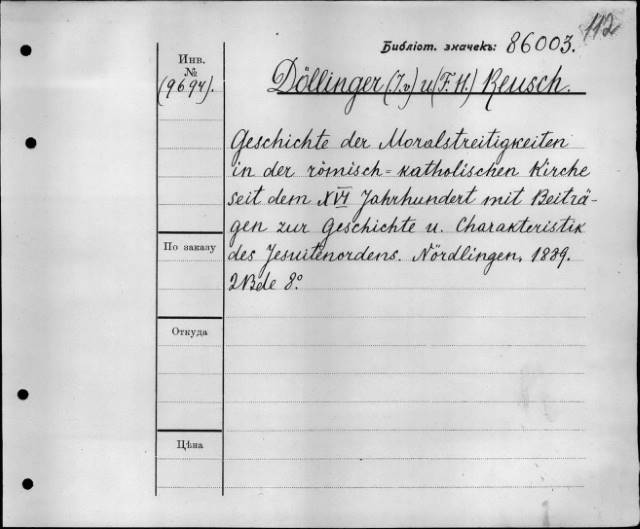 112
Библіот. значекъ: 86003.
Инв.
№
(9694).
Döllinger (J. v.) u (F. H.) Reusch.
Geschichte der Moralstreitigkeiten
in der römisch=katholischen Kirche
seit dem XVI Jahrhundert mit Beiträ-
gen zur Geschichte u. Charakteristik
des Jesuitenordens. Nördlingen, 1889.
2Bde 8º
По заказу
Откуда
Цѣна